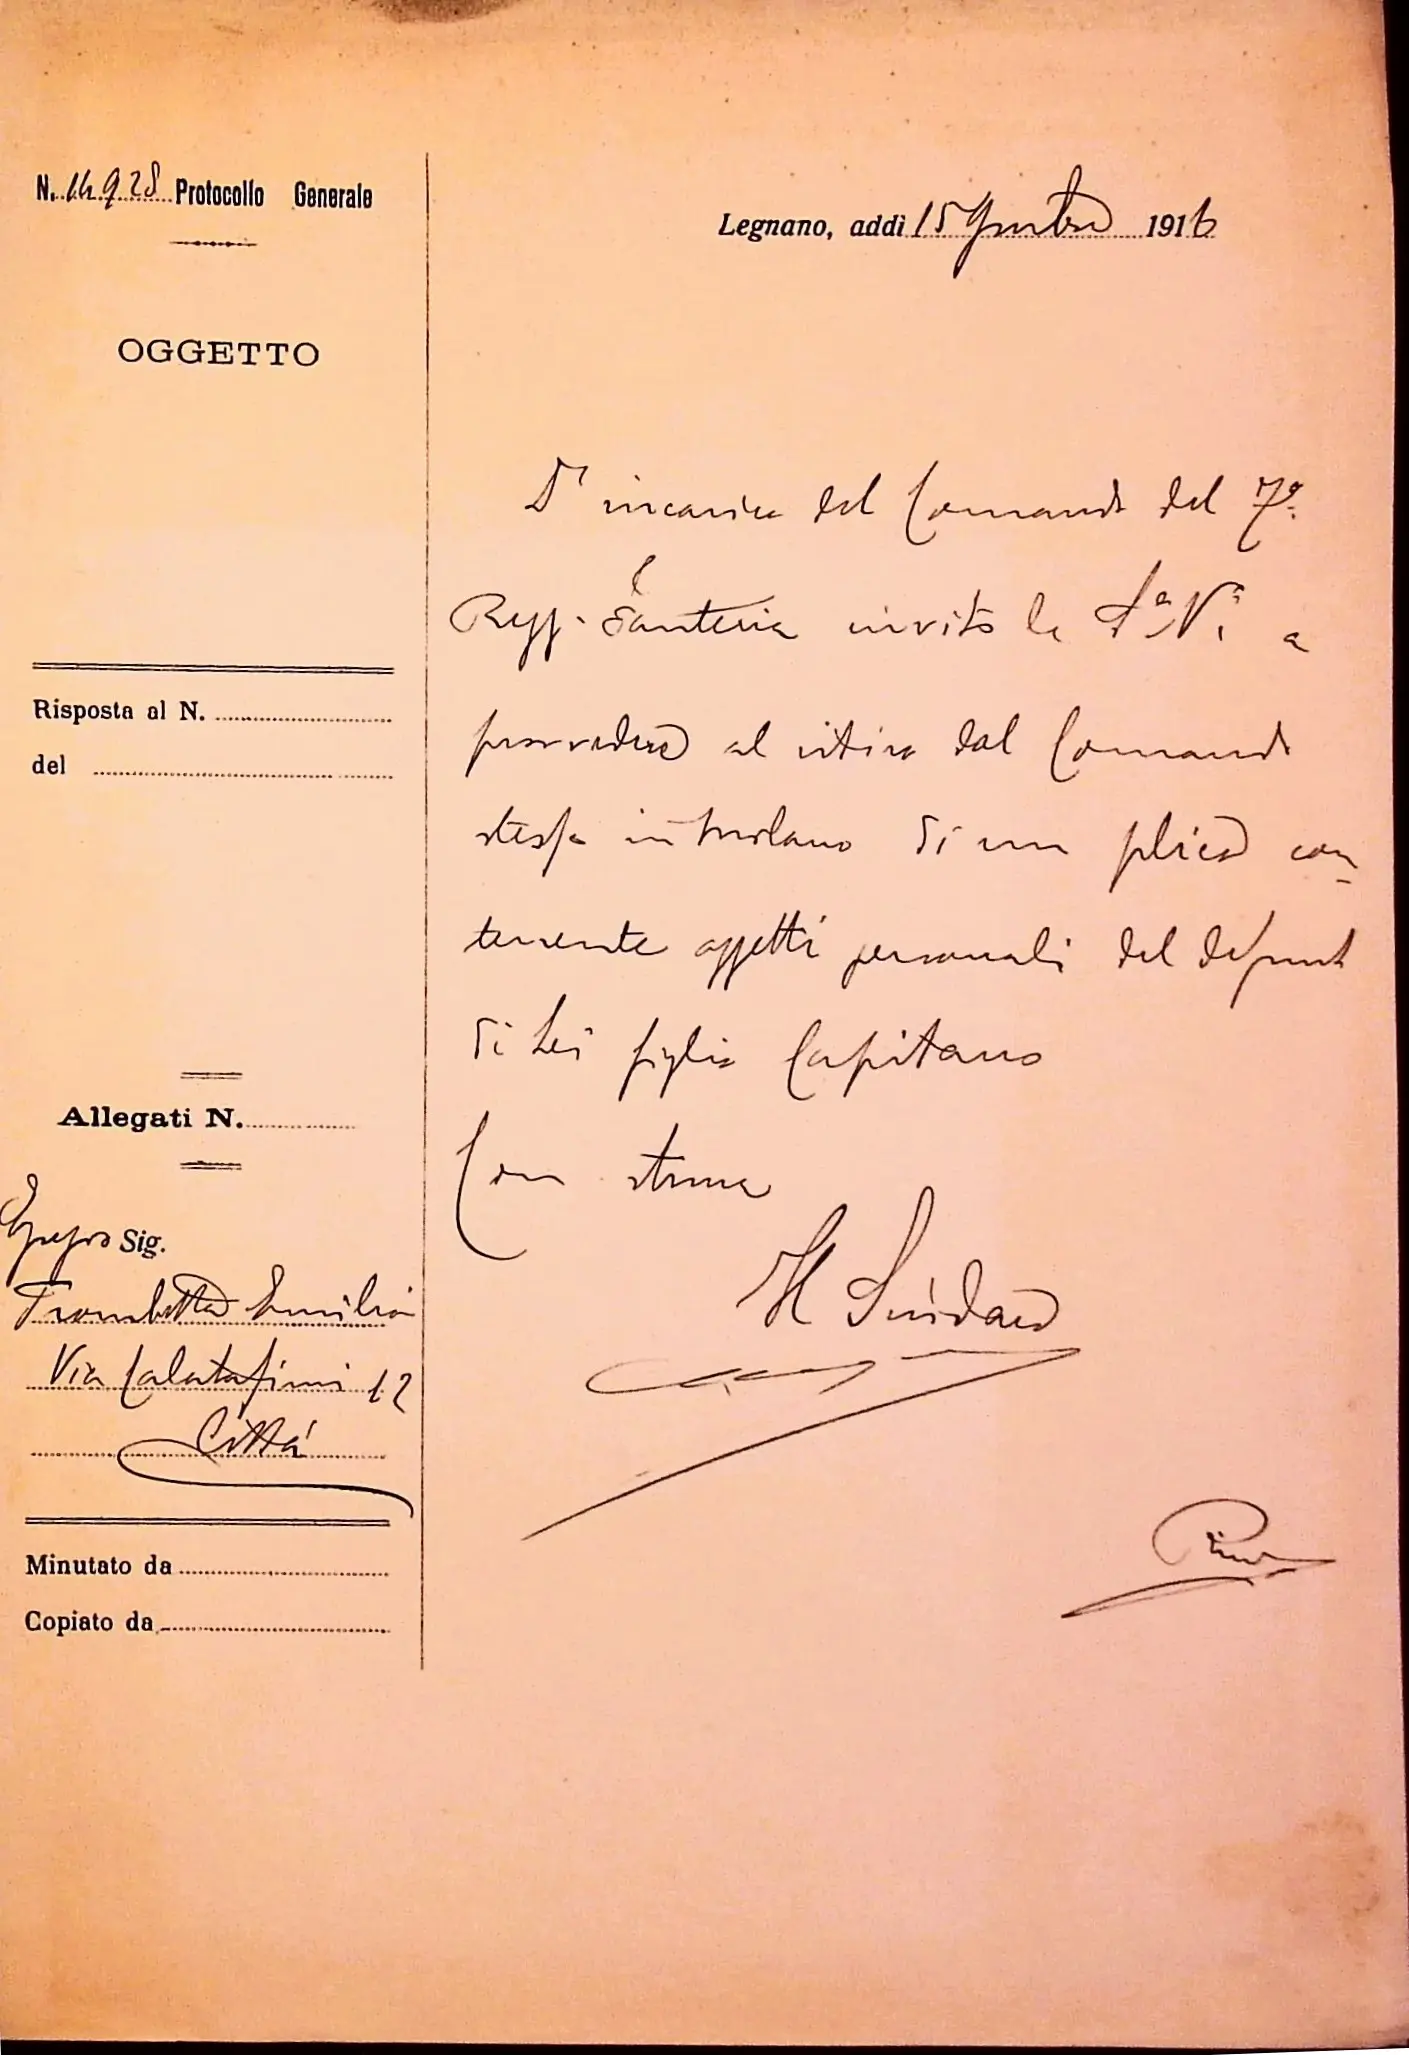 N. 14928 Protocollo Generale
Legnano, addì 15 9mbre 1916
OGGETTO
D' incarico del Comando del 7º
Regg. Fanteria invito la S.a V.a a
provvedere al ritiro dal Comando
stesso in Milano di un plico con-
tenente oggetti personali del defunto
di Lei figlio Capitano
Con stima
Il Sindaco
Risposta al N.
del
Allegati N.
Egregio Sig.
Trombetta Emilio
Via Calatafimi 12
Città
Minutato da
Copiato da